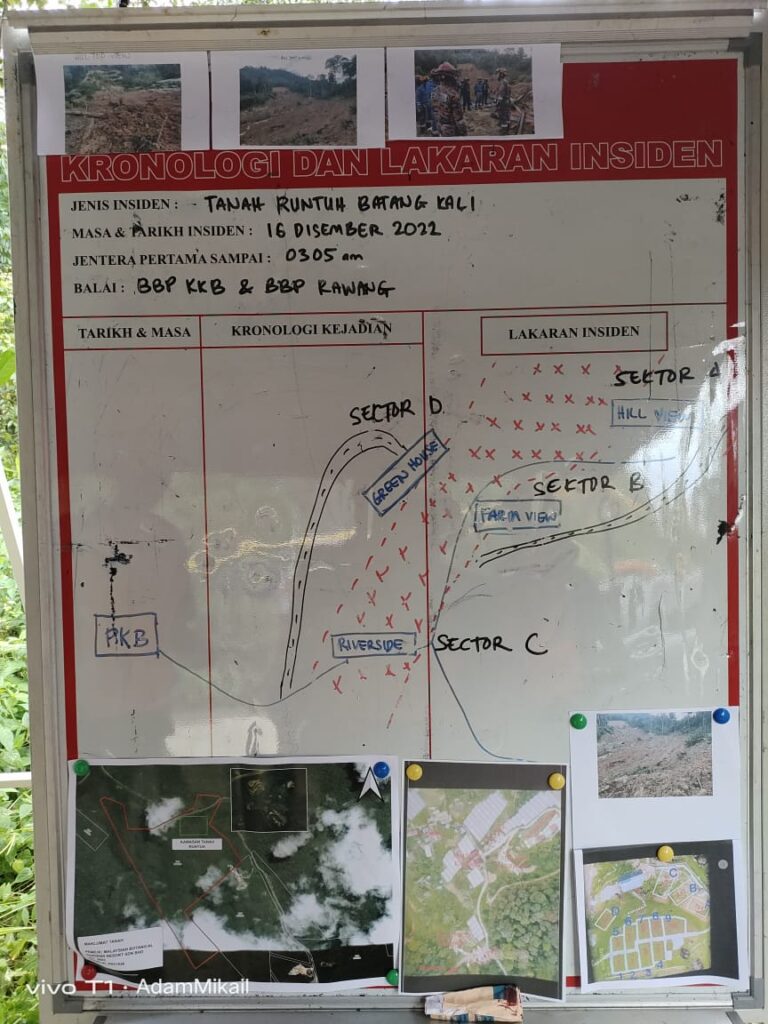 HILL TOP VIEW
KRONOLOGI DAN LAKARAN INSIDEN
JENIS INSIDEN : - TANAH RUNTUH BATANG KALI
MASA & TARIKH INSIDEN : 16 DISEMBER 2022
JENTERA PERTAMA SAMPAI : 0305 am
BALAI : BBP KKB & BBP RAWANG
TARIKH & MASA
KRONOLOGI KEJADIAN
LAKARAN INSIDEN
SEKTOR A
HILL VIEW
SEKTOR D
GREEN HOUSE
SEKTOR B
FARM VIEW
PKB
RIVERSIDE
SECTOR C
KAWASAN TANAH
RUNTUH
MAKLUMAT TANAH
MALAYSIAN BOTANICAL
RESORT SDN BHD
C
B
D
5 6 7 8 9
1 2 3 4
vivo T1 · AdamMikall